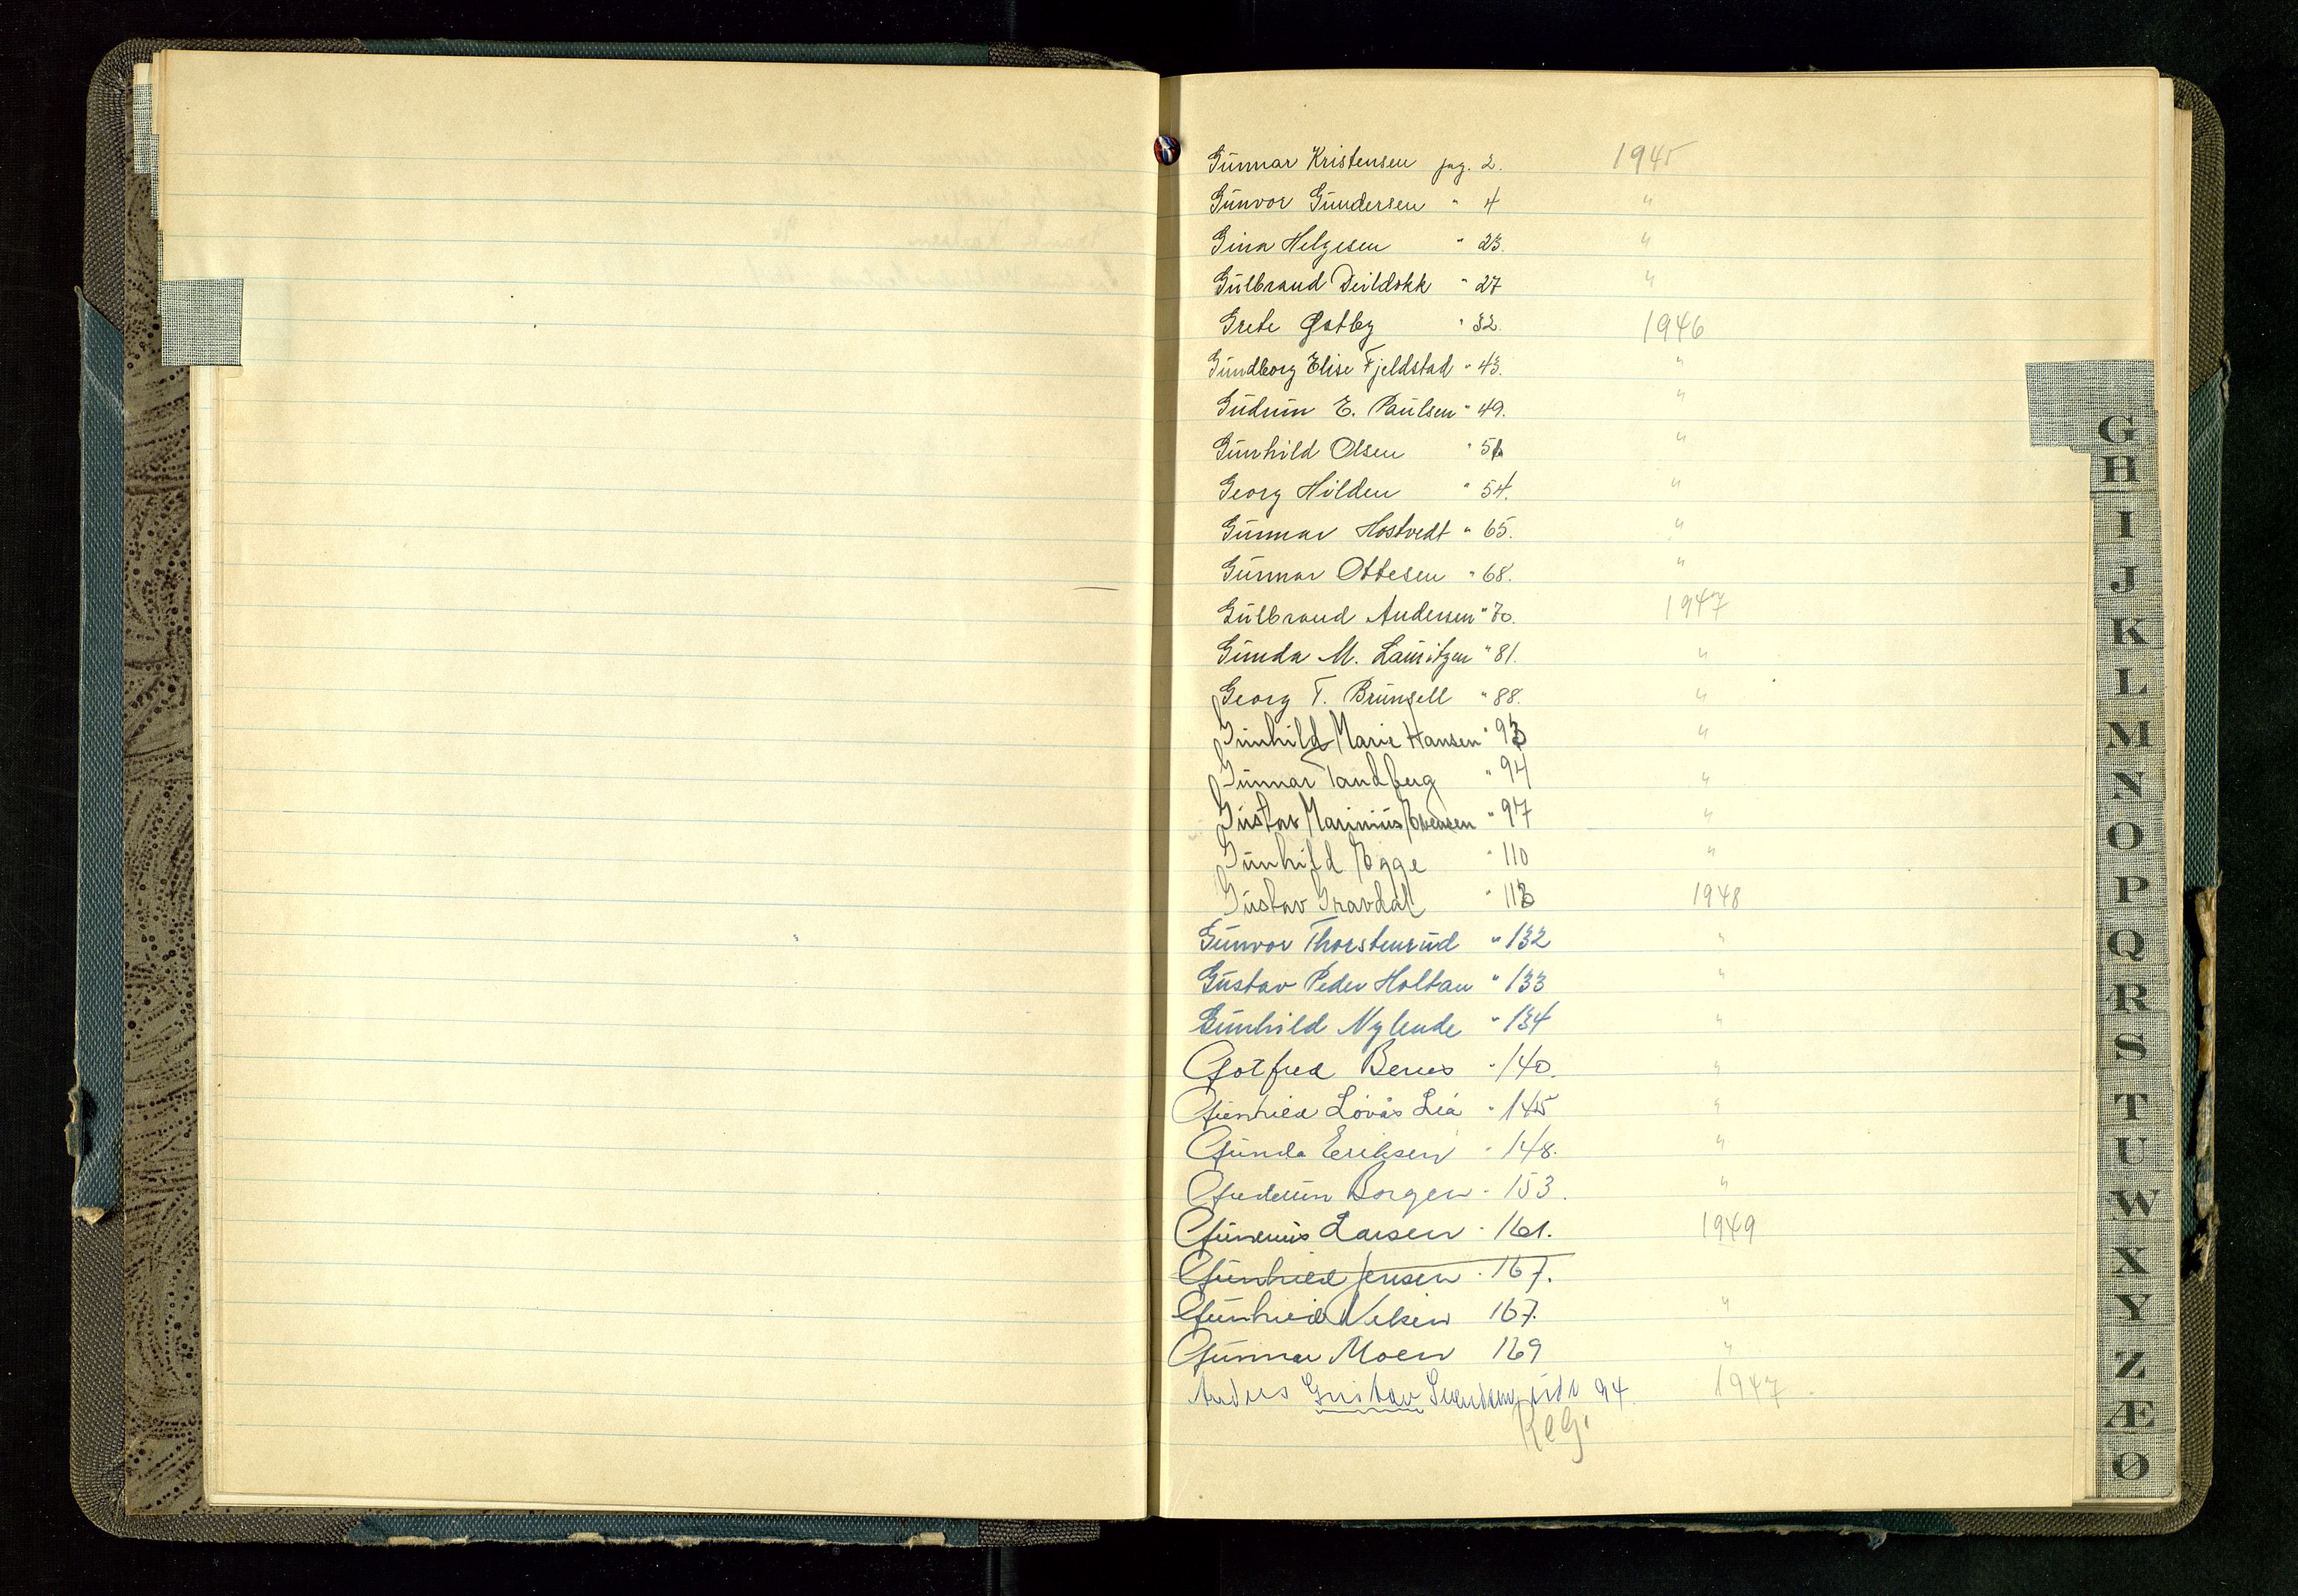 Gunnar Kristensen pag. 2. 1945
Gunvor Gundersen " 4 "
Gina Helgesen " 23. "
Gulbrand Deildokk " 27 "
Grete Østby " 32. 1946
Gundborg Elise Fjeldstad " 43. "
Gudrun E. Paulsen " 49. "
Gunhild Olsen " "
Georg Hilden " 54. "
Gunnar Hostvedt " 65. "
Gunnar Ottesen " 68. "
Gulbrand Andersen " 70. 1947
Gunda M. Lauritzen " 81. "
Georg T. Brunsell " 88. "
Gunhild Marie Hansen " 93 "
Gunnar Tandberg " 94 "
Gustav Marinius Evensen " 97 "
Gunhild Egge " 110 "
Gustav Gravdal " 1948
Gunvor Thorstenrud " 132 "
Gustav Peder Holtan " 133 "
Gunhild Nylende " 134 "
Gotfred Bernes " 140. "
Gunhild Lövås Lia " 145 "
Gunda Eriksen " 148. "
Gudrun Borgen " 153. "
Gunerius Larsen " 161. 1949
Gunhild Jensen " 167.
Gunhild 167. "
Gunnar Moen 169 "
Anders Gustav Svendsen side 94. 1947.
Reg.
G
H
I
J
K
L
M
N
O
P
Q
R
S
T
U
W
X
Y
Z
Æ
Ø